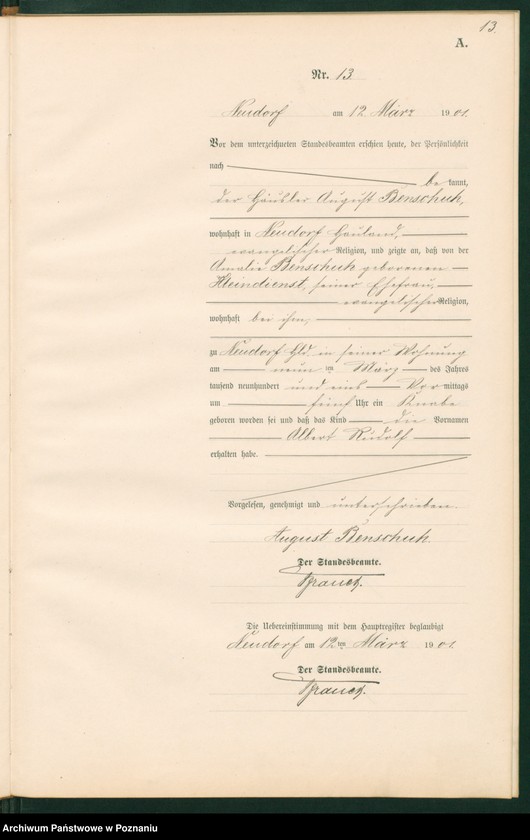 13.
A.
Nr. 13
Neudorf am 12 März 1901.
Vor dem unterzeichneten Standesbeamten erschien heute, der Persönlichkeit
nach
be kannt,
der Häusler August Benschuh,
wohnhaft in Neudorf Hauland,
evangelischer Religion, und zeigte an, daß von der
Amalie Benschuh geborenen
Kleindienst, seiner Ehefrau,
evangelischer Religion,
wohnhaft bei ihm,
zu Neudorf Hld. in seiner Wohnung
am neun ten März des Jahres
tausend neunhundert und eins Vor mittags
um fünf Uhr ein Knabe
geboren worden sei und daß das Kind die Vornamen
Albert Rudolf
erhalten habe.
Vorgelesen, genehmigt und unterschrieben.
August Benschuh.
Der Standesbeamte.
Die Uebereinstimmung mit dem Hauptregister beglaubigt
Neudorf am 12ten März 1901.
Der Standesbeamte.
Archiwum Państwowe w Poznaniu